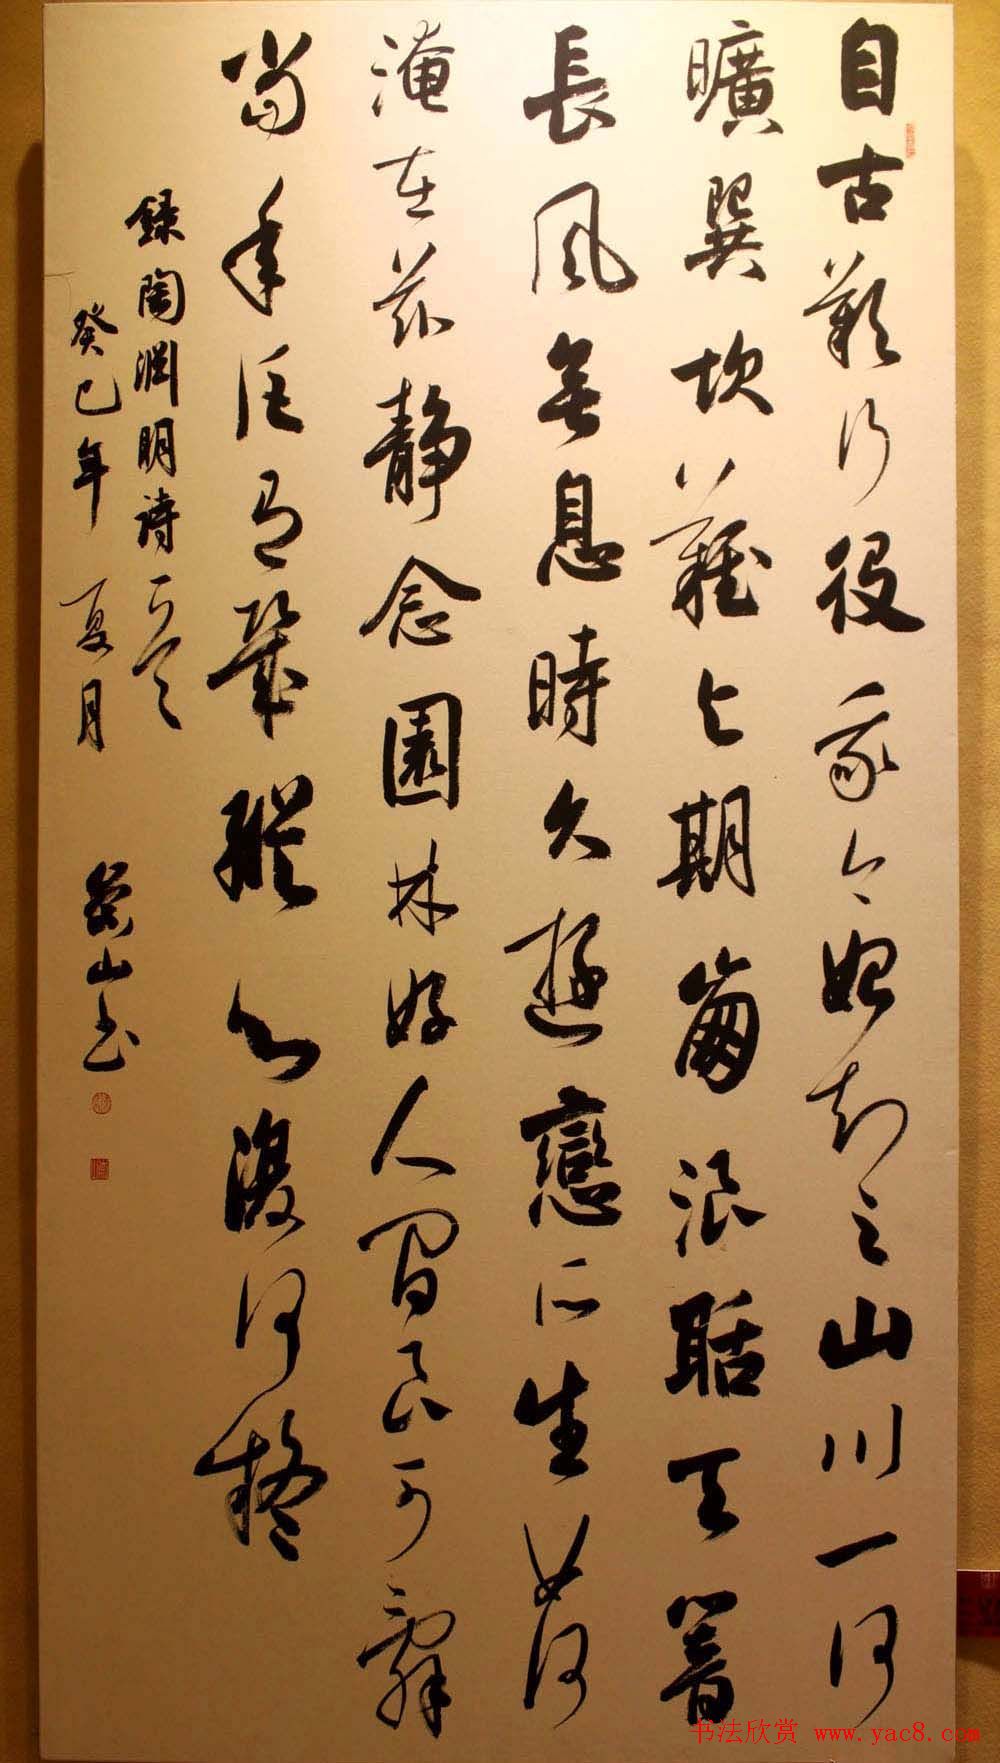 自古歎行役我今始知之山川一何
曠巽坎難与期崩浪聒天響
長風無息時久遊戀所生如何
淹在茲靜念園林好人間良可辭
當年詎有幾縱心復何疑
錄陶淵明詩一首
癸巳年夏月 山書
书法欣赏 www.yac8.com